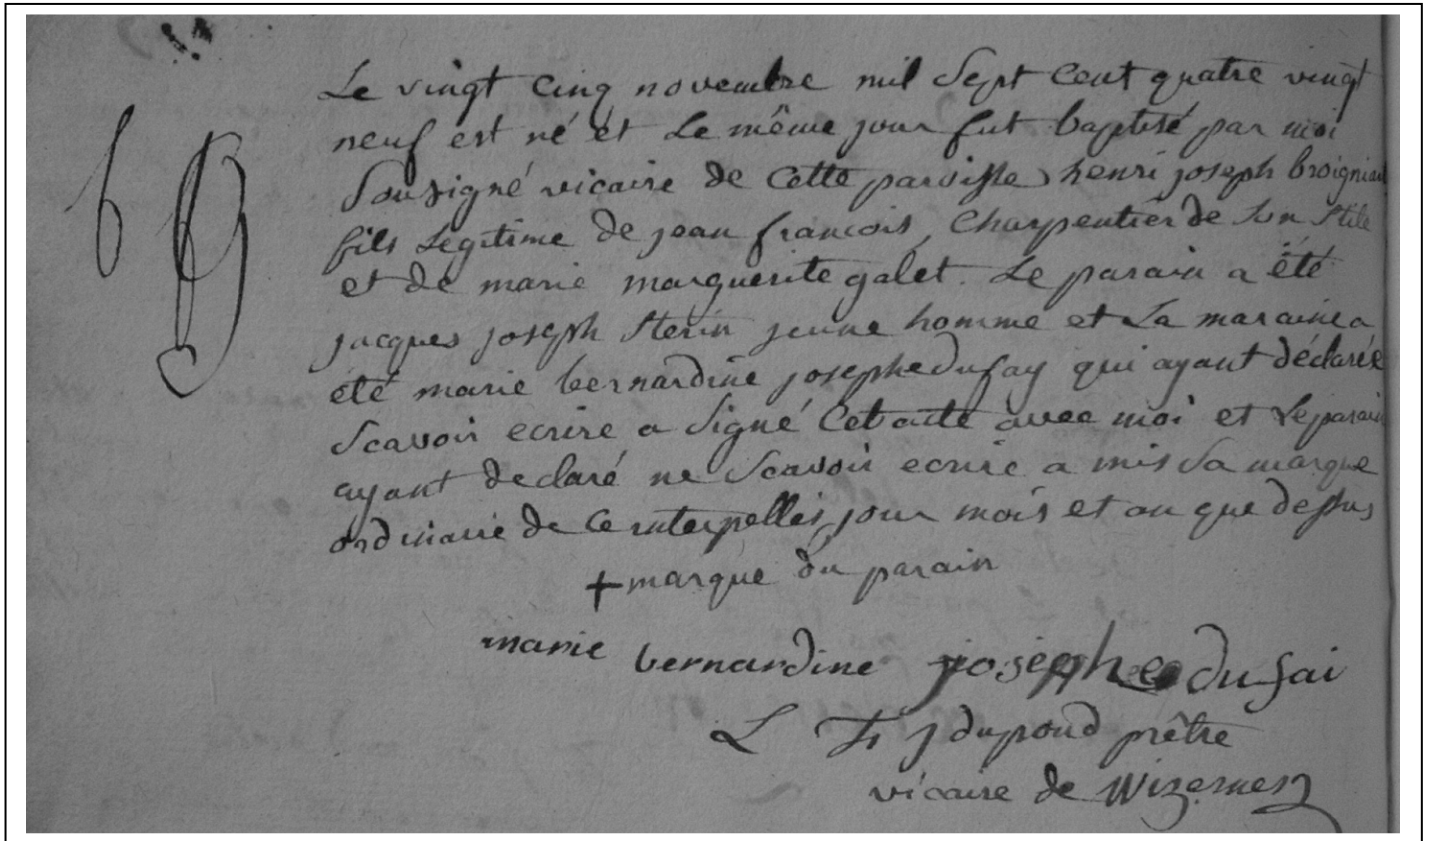 Le vingt cinq novembre mil Sept Cent quatre vingt
neuf est né et Le même jour fut baptisé par moi
Sousigné vicaire de Cette paroisse henri joseph broigniar
fils Legitime de jean francois Charpentier de Son Stile
et de marie marguerite galet. Le parain a été
jacques joseph Sterin jeune homme et La maraine a
été marie bernardine josephe dufay qui ayant déclarée
Scavoir ecrire a Signé Cet acte avec moi et Le parain
ayant declaré ne Scavoir ecrire a mis Sa marque
ordinaire de Ce interpellés jour mois et an que dessus
+ marque du parain
marie bernardine josephe dufai
L F j dupond prêtre
vicaire de Wizernes